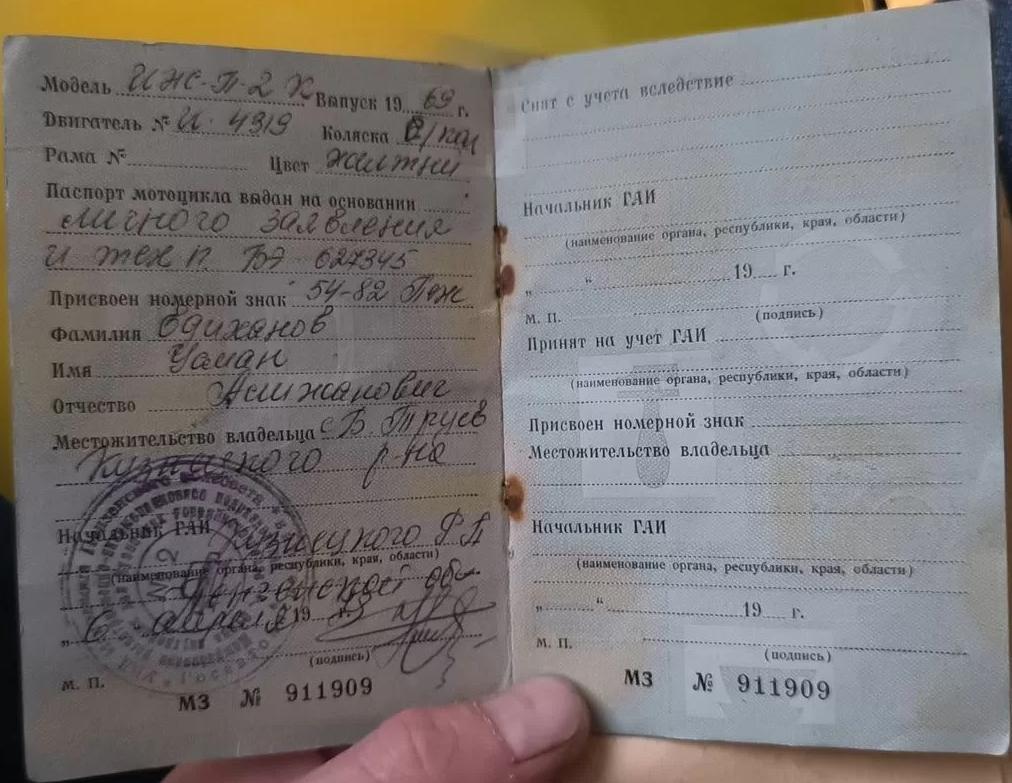 Модель ИЖ-П-2 К Выпуск 1969 г.
Двигатель № И-4319 Коляска б/кол
Рама № Цвет желтый
Паспорт мотоцикла выдан на основании
личного заявления
и тех п. БЭ 627345
Присвоен номерной знак 54-82 Пеж
Фамилия
Имя Усман
Отчество
Местожительство владельца с Б. Труев
Кузнецкого р-на
Начальник ГАИ Кузнецкого
(наименование органа, республики, края, области)
Пензенской обл.
„6“ апреля 19 г.
(подпись)
М. П.
МЗ № 911909
Снят с учета вследствие
Начальник ГАИ
(наименование органа, республики, края, области)
„ “ 19 г.
М. П. (подпись)
Принят на учет ГАИ
(наименование органа, республики, края, области)
Присвоен номерной знак
Местожительство владельца
Начальник ГАИ
(наименование органа, республики, края, области)
„ “ 19 г.
М. П. (подпись)
МЗ № 911909